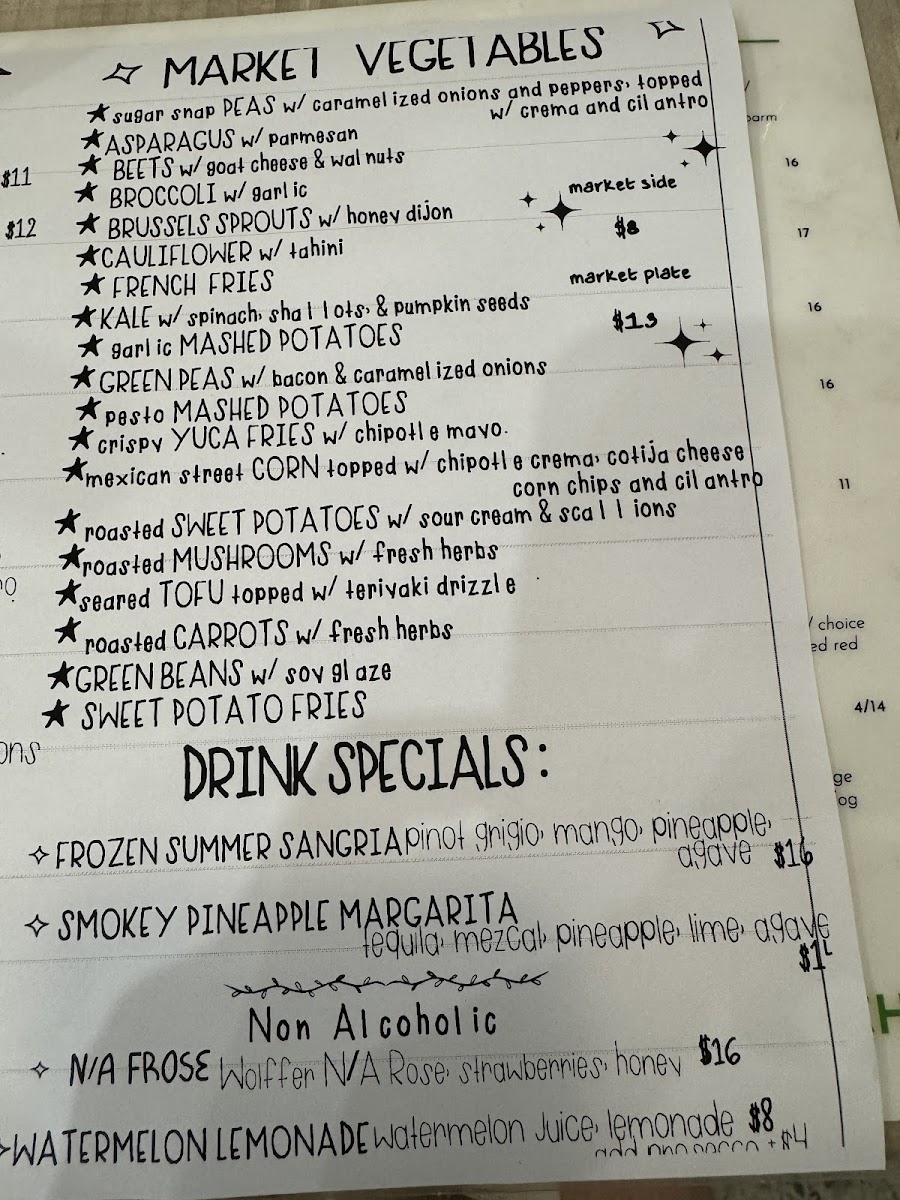 MARKET VEGETABLES
sugar snap PEAS w/ caramelized onions and peppers, topped
w/ crema and cilantro
ASPARAGUS w/ parmesan
BEETS w/ goat cheese & walnuts
$11
BROCCOLI w/ garlic
BRUSSELS SPROUTS w/ honey dijon
$12
CAULIFLOWER w/ tahini
FRENCH FRIES
KALE w/ spinach, shallots, & pumpkin seeds
garlic MASHED POTATOES
GREEN PEAS w/ bacon & caramelized onions
pesto MASHED POTATOES
crispy YUCA FRIES w/ chipotle mayo.
mexican street CORN topped w/ chipotle crema, cotija cheese
corn chips and cilantro
roasted SWEET POTATOES w/ sour cream & scallions
roasted MUSHROOMS w/ fresh herbs
seared TOFU topped w/ teriyaki drizzle
roasted CARROTS w/ fresh herbs
GREEN BEANS w/ soy glaze
SWEET POTATO FRIES
market side
$8
market plate
$13
DRINK SPECIALS:
FROZEN SUMMER SANGRIA pinot grigio, mango, pineapple,
agave $16
SMOKEY PINEAPPLE MARGARITA
tequila, mezcal, pineapple, lime, agave
Non Alcoholic
N/A FROSE Wolffer N/A Rose, strawberries, honey $16
WATERMELON LEMONADE watermelon Juice, lemonade $8
add prosecco +$4
16
17
16
16
11
choice
red
4/14